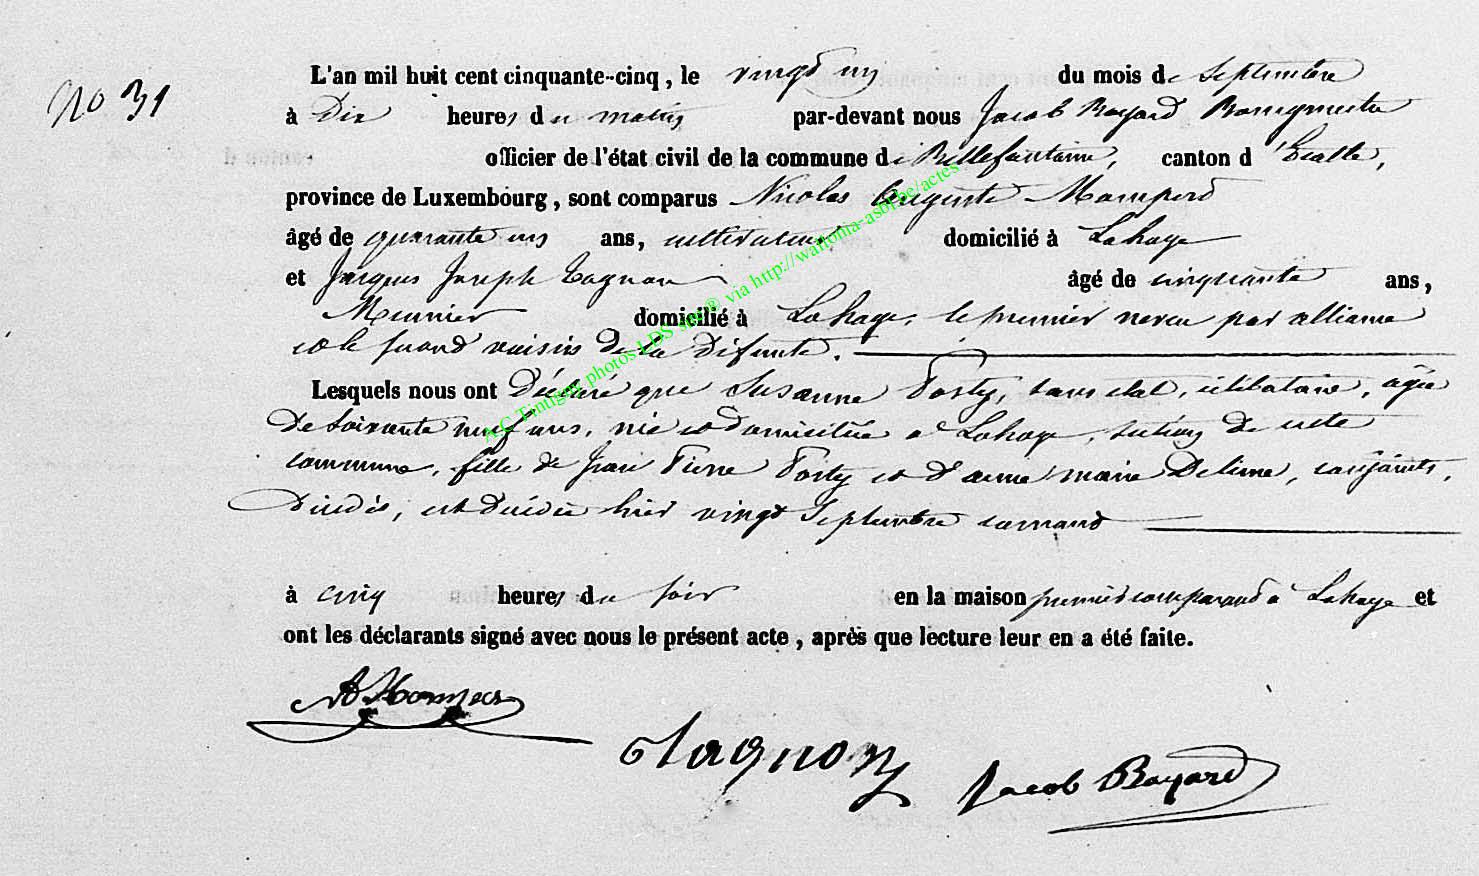 No 31
L'an mil huit cent cinquante-cinq, le vingt un du mois de Septembre
à Dix heures du matin par-devant nous Jacob Bayard Bourgmestre
officier de l'état civil de la commune de Bellefontaine, canton d'Etalle,
province de Luxembourg, sont comparus Nicolas Auguste
âgé de quarante un ans, cultivateur domicilié à Lahage
et Jacques Joseph Tagnon âgé de cinquante ans,
Meunier domicilié à Lahage, le premier neveu par alliance
et le second voisin de la défunte.
Lesquels nous ont déclaré que Susanne Forty, sans état, célibataire, agée
de soixante neuf ans, née et domiciliée à Lahage, section de cette
commune, fille de Jean Pierre Forty et d'anne marie, conjoints,
décédés, est décédée hier vingt Septembre courant
à cinq heures du soir en la maison premier comparant à Lahage et
ont les déclarants signé avec nous le présent acte, après que lecture leur en a été faite.
Tagnon
Jacob Bayard
A.C Tintigny photos LDS via http://wallonia-asbl.be/actes